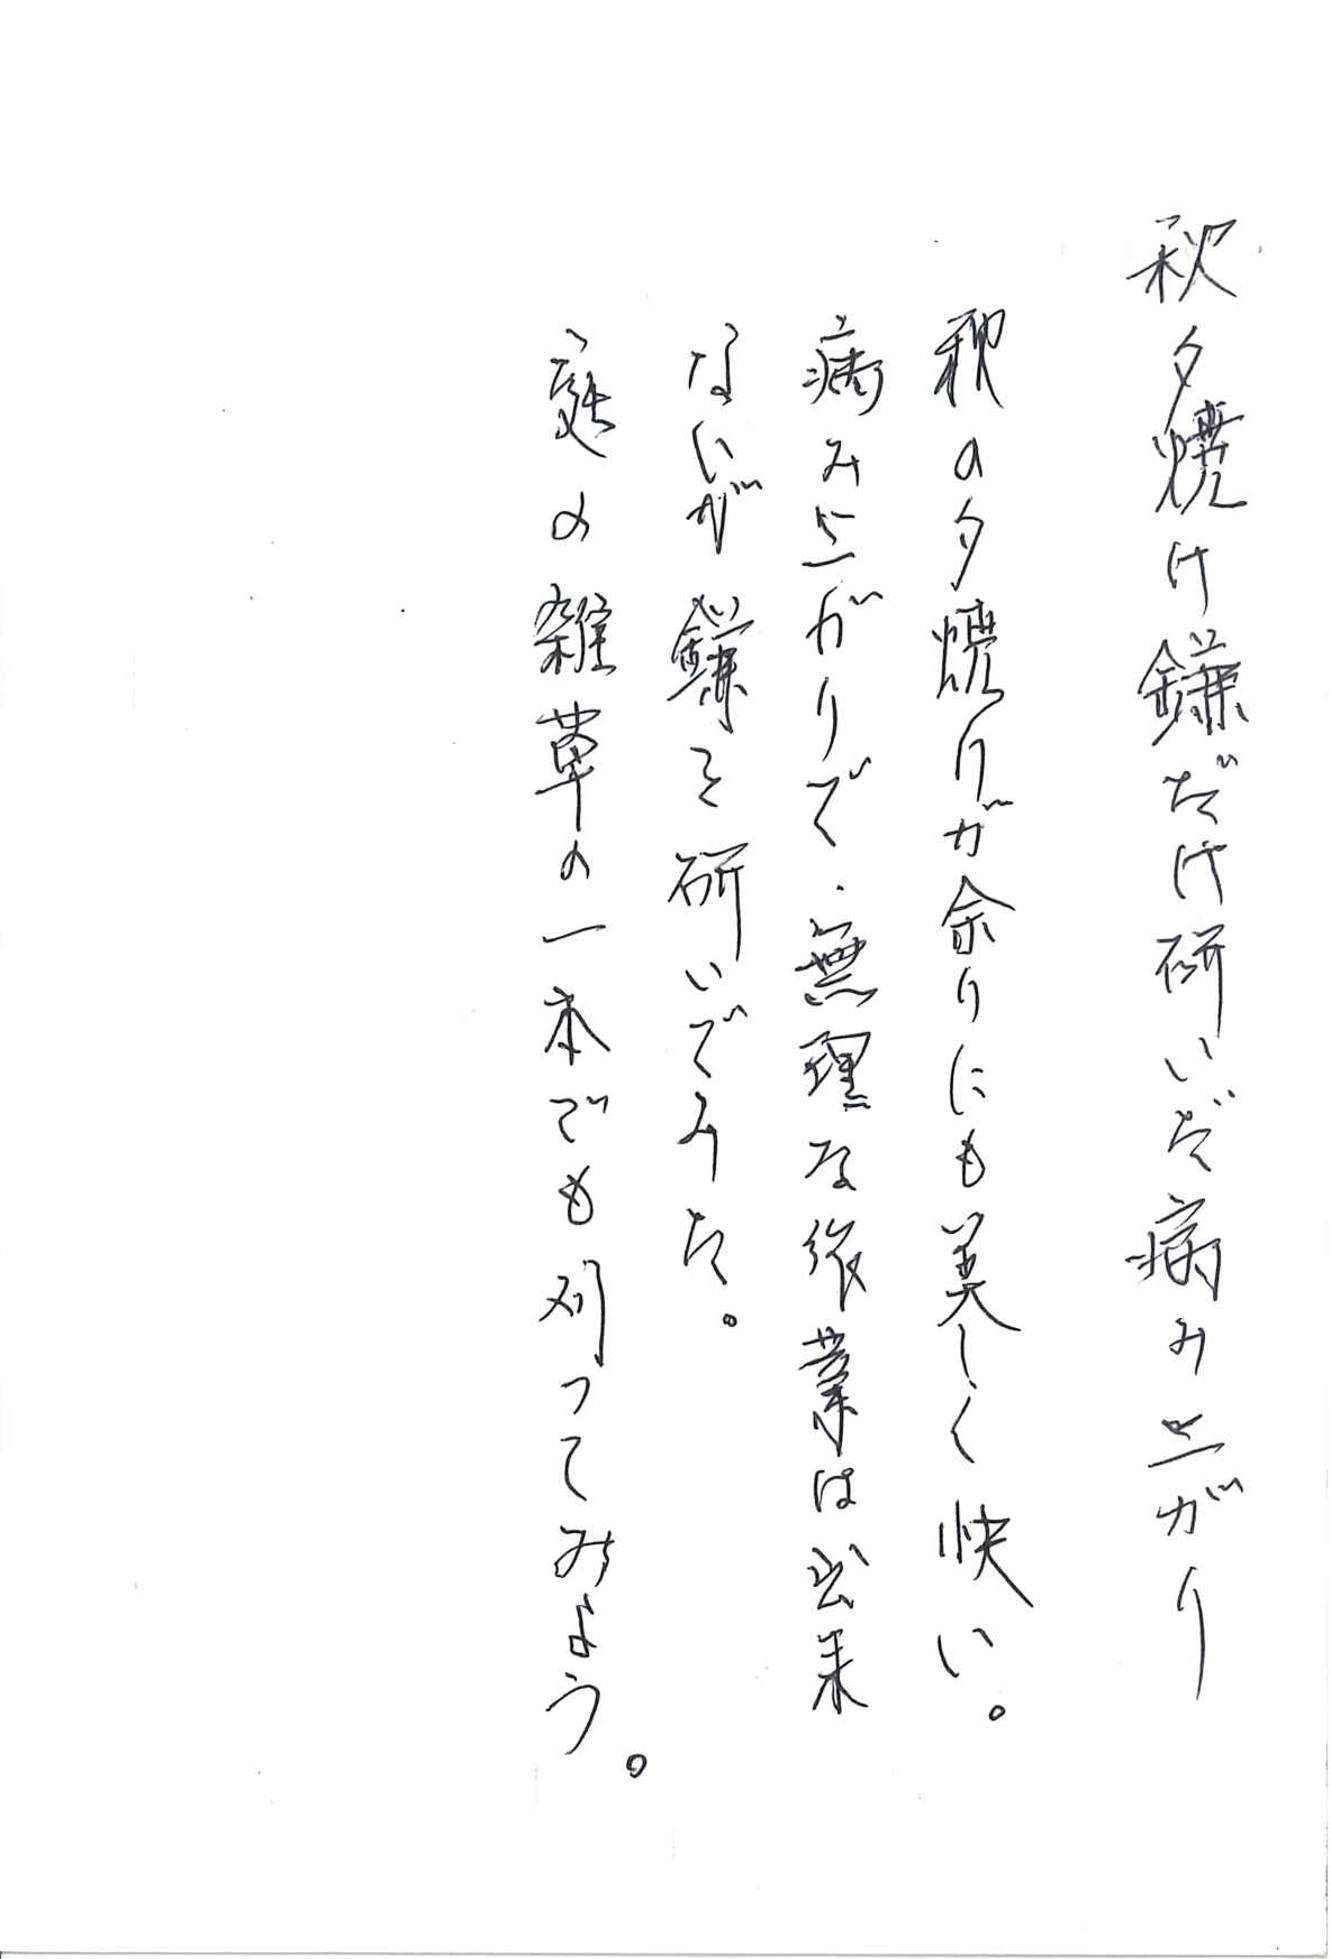 秋夕焼け鎌だけ研いだ病み上がり
秋の夕焼けが余りにも美しく快い。
病み上がりで無理な作業は出来
ないが鎌を研いでみた。
庭の雑草の一本でも刈ってみよう。